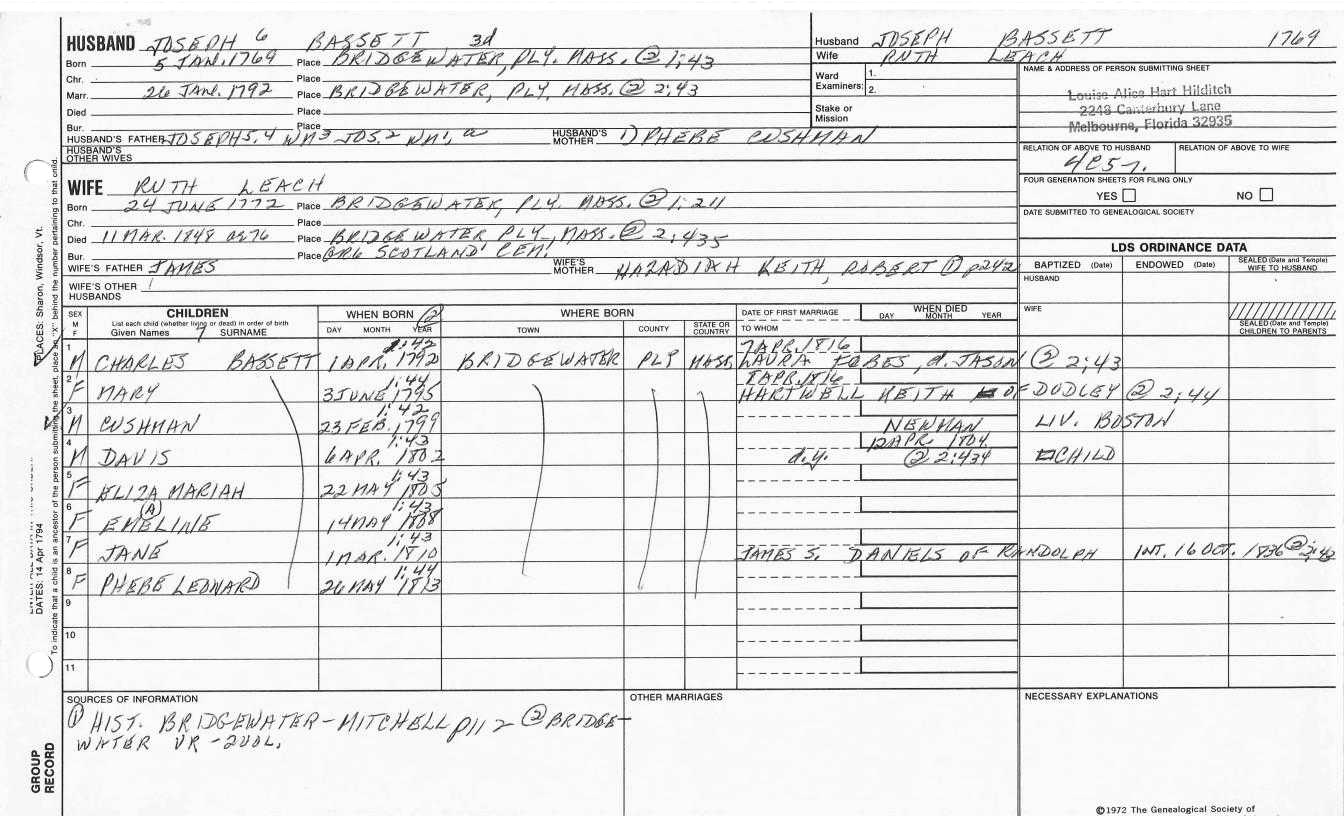 HUSBAND JOSEPH 6 BASSETT 3d
Born 5 JAN. 1769 Place BRIDGEWATER, PLY. MASS. ② 1:43
Chr. Place
Marr. 26 JAN. 1792 Place BRIDGEWATER, PLY, MASS. ② 2:43
Died Place
Bur. Place
HUSBAND'S FATHER JOSEPH 5, 4 WM 3 JOS. 2 WM 1, a HUSBAND'S MOTHER 1) PHEBE CUSHMAN
HUSBAND'S OTHER WIVES
Husband JOSEPH BASSETT 1769
Wife RUTH LEACH
Ward Examiners: 1.
2.
Stake or Mission
NAME & ADDRESS OF PERSON SUBMITTING SHEET
Louise Alice Hart Hilditch
2248 Canterbury Lane
Melbourne, Florida 32935
RELATION OF ABOVE TO HUSBAND RELATION OF ABOVE TO WIFE
FOUR GENERATION SHEETS FOR FILING ONLY
YES NO
DATE SUBMITTED TO GENEALOGICAL SOCIETY
WIFE RUTH LEACH
Born 24 JUNE 1772 Place BRIDGEWATER, PLY. MASS. ② 1:211
Chr. Place
Died 11 MAR. 1848 ae 76 Place BRIDGEWATER PLY., MASS. ② 2:435
Bur. Place SCOTLAND CEM.
WIFE'S FATHER JAMES WIFE'S MOTHER HAZADIAH KEITH, ROBERT ① p242
WIFE'S OTHER HUSBANDS
LDS ORDINANCE DATA
BAPTIZED (Date) ENDOWED (Date) SEALED (Date and Temple) WIFE TO HUSBAND
HUSBAND
WIFE
SEALED (Date and Temple) CHILDREN TO PARENTS
SEX M F
CHILDREN
List each child (whether living or dead) in order of birth
Given Names 7 SURNAME
WHEN BORN ②
DAY MONTH YEAR
WHERE BORN
TOWN COUNTY STATE OR COUNTRY
DATE OF FIRST MARRIAGE
TO WHOM
WHEN DIED
DAY MONTH YEAR
1:42 7 APR. 1816
1 M CHARLES BASSETT 1 APR. 1792 BRIDGEWATER PLY MASS LAURA FOBES, d. JASON ② 2:43
1:44 8 APR. 1816
2 F MARY 3 JUNE 1795 HARTWELL KEITH OF DUDLEY ② 2:44
1:42
3 M CUSHMAN 23 FEB. 1799 NEWMAN LIV. BOSTON
1:43 12 APR. 1804
4 M DAVIS 6 APR. 1802 d.y. ② 2:434 CHILD
1:43
5 F ELIZA MARIAH 22 MAY 1805
(A) 1:43
6 F EMELINE 14 MAY 1808
1:43
7 F JANE 1 MAR. 1810 JAMES S. DANIELS OF RANDOLPH INT. 16 OCT. 1836 ② 2:42
1:44
8 F PHEBE LEONARD 26 MAY 1813
9
10
11
SOURCES OF INFORMATION
① HIST. BRIDGEWATER-MITCHELL p112 ② BRIDGE-
WATER VR - 2 VOL.
OTHER MARRIAGES
NECESSARY EXPLANATIONS
©1972 The Genealogical Society of
PLACES: Sharon, Windsor, Vt.
DATES: 14 Apr 1794
To indicate that a child is an ancestor of the person submitting the sheet, place an "X" behind the number pertaining to that child.
GROUP RECORD